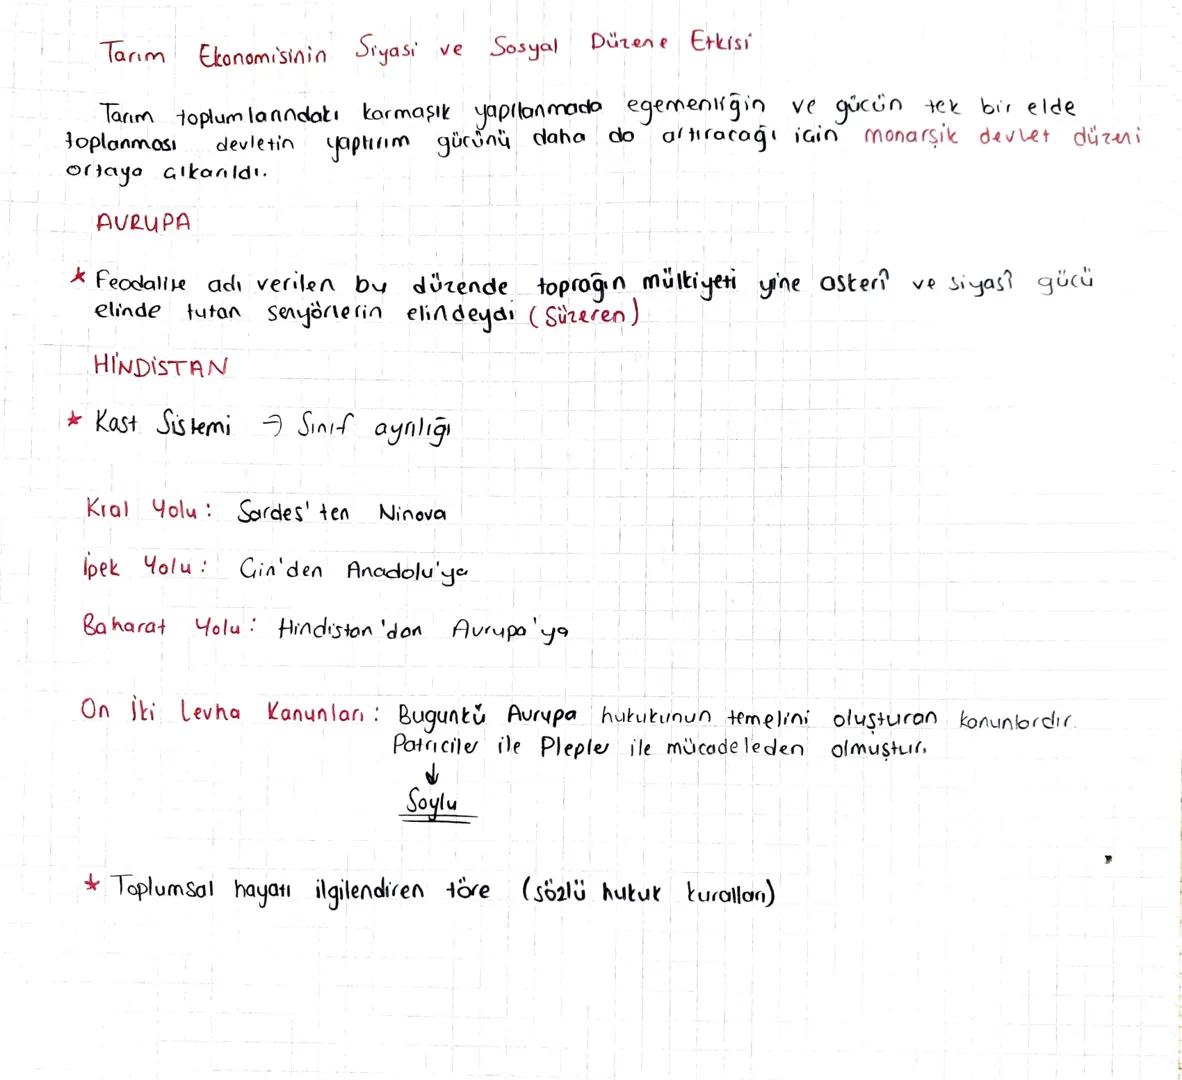 Tarım Ekonomisinin Siyasi ve Sosyal Düzene Etkisi
Tarım toplumlarındakı karmaşık yapılanmada egemenliğin ve gücün tek bir elde
toplanması devletin yaptırım gücünü daha da artıracağı için monarşik devlet düzeni
ortaya çıkarıldı.
AVRUPA
* Feodalite adı verilen bu düzende toprağın mülkiyeti yine askerî ve siyasî gücü
elinde tutan senyörlerin elindeydi (Süzeren)
HİNDİSTAN
* Kast Sistemi → Sınıf ayrılığı
Kral Yolu: Sardes'ten Ninova
İpek Yolu: Çin'den Anadolu'ya
Baharat Yolu: Hindistan'dan Avrupa'ya
On İki Levha Kanunları: Bugunkü Avrupa hukukunun temelini oluşturan kanunlardır.
Patriciler ile Plepler ile mücadeleden olmuştur.
↓
Soylu
* Toplumsal hayatı ilgilendiren töre (sözlü hukuk kuralları)